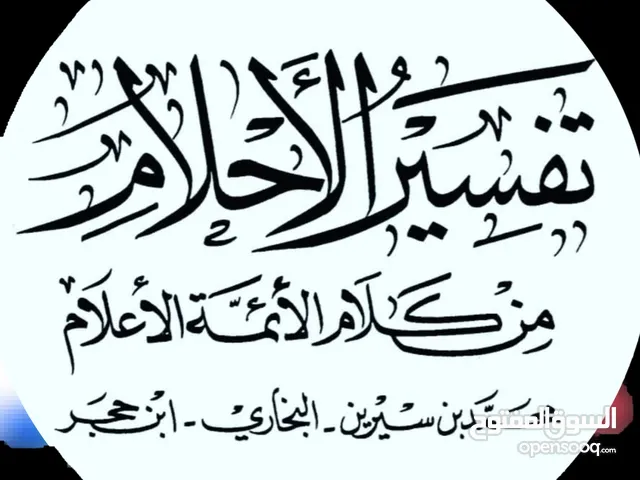 تفسير الأحلام
من كلام الأئمة الأعلام
محمد بن سيرين - البخاري - ابن حجر
السوق المفتوح
opensooq.com